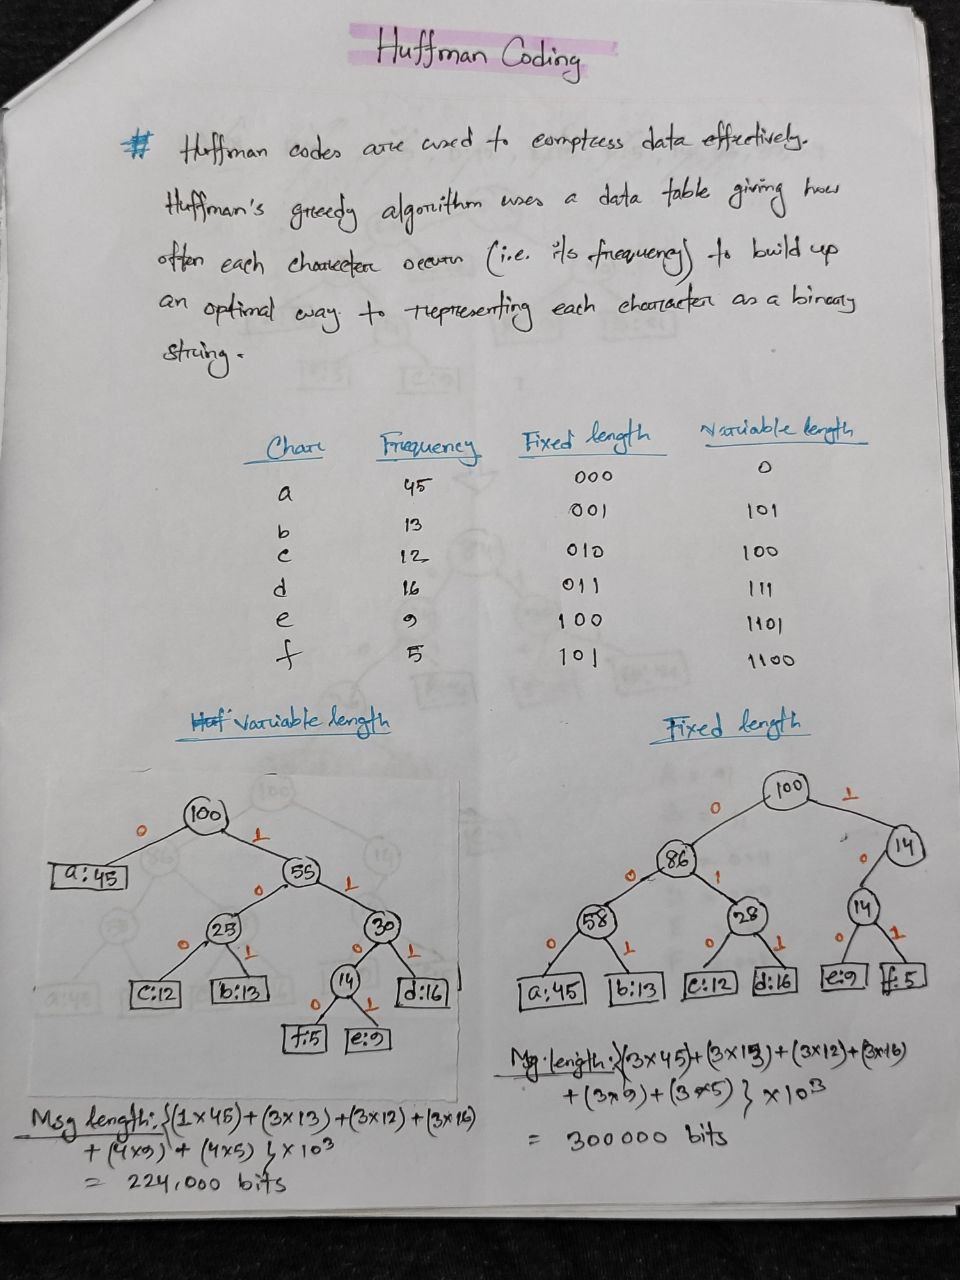 Huffman Coding
# Huffman codes are used to compress data effectively.
Huffman's greedy algorithm uses a data table giving how
often each character occurs (i.e. its frequency) to build up
an optimal way to representing each character as a binary
string.
Char Frequency Fixed length Variable length
a 45 000 0
b 13 001 101
c 12 010 100
d 16 011 111
e 9 100 1101
f 5 101 1100
Variable length Fixed length
100
0 1
a:45
55
0 1
25
30
0 1 0 1
c:12 b:13 14 d:16
0 1
f:5 e:9
Msg length: {(1x45)+(3x13)+(3x12)+(3x16)
+(4x9)+(4x5)}x10³
= 224,000 bits
100
0 1
86 14
0 1 0
58 28 14
0 1 0 1 0 1
a:45 b:13 c:12 d:16 e:9 f:5
Mg. length: {(3x45)+(3x13)+(3x12)+(3x16)
+(3x9)+(3x5)}x10³
= 300000 bits